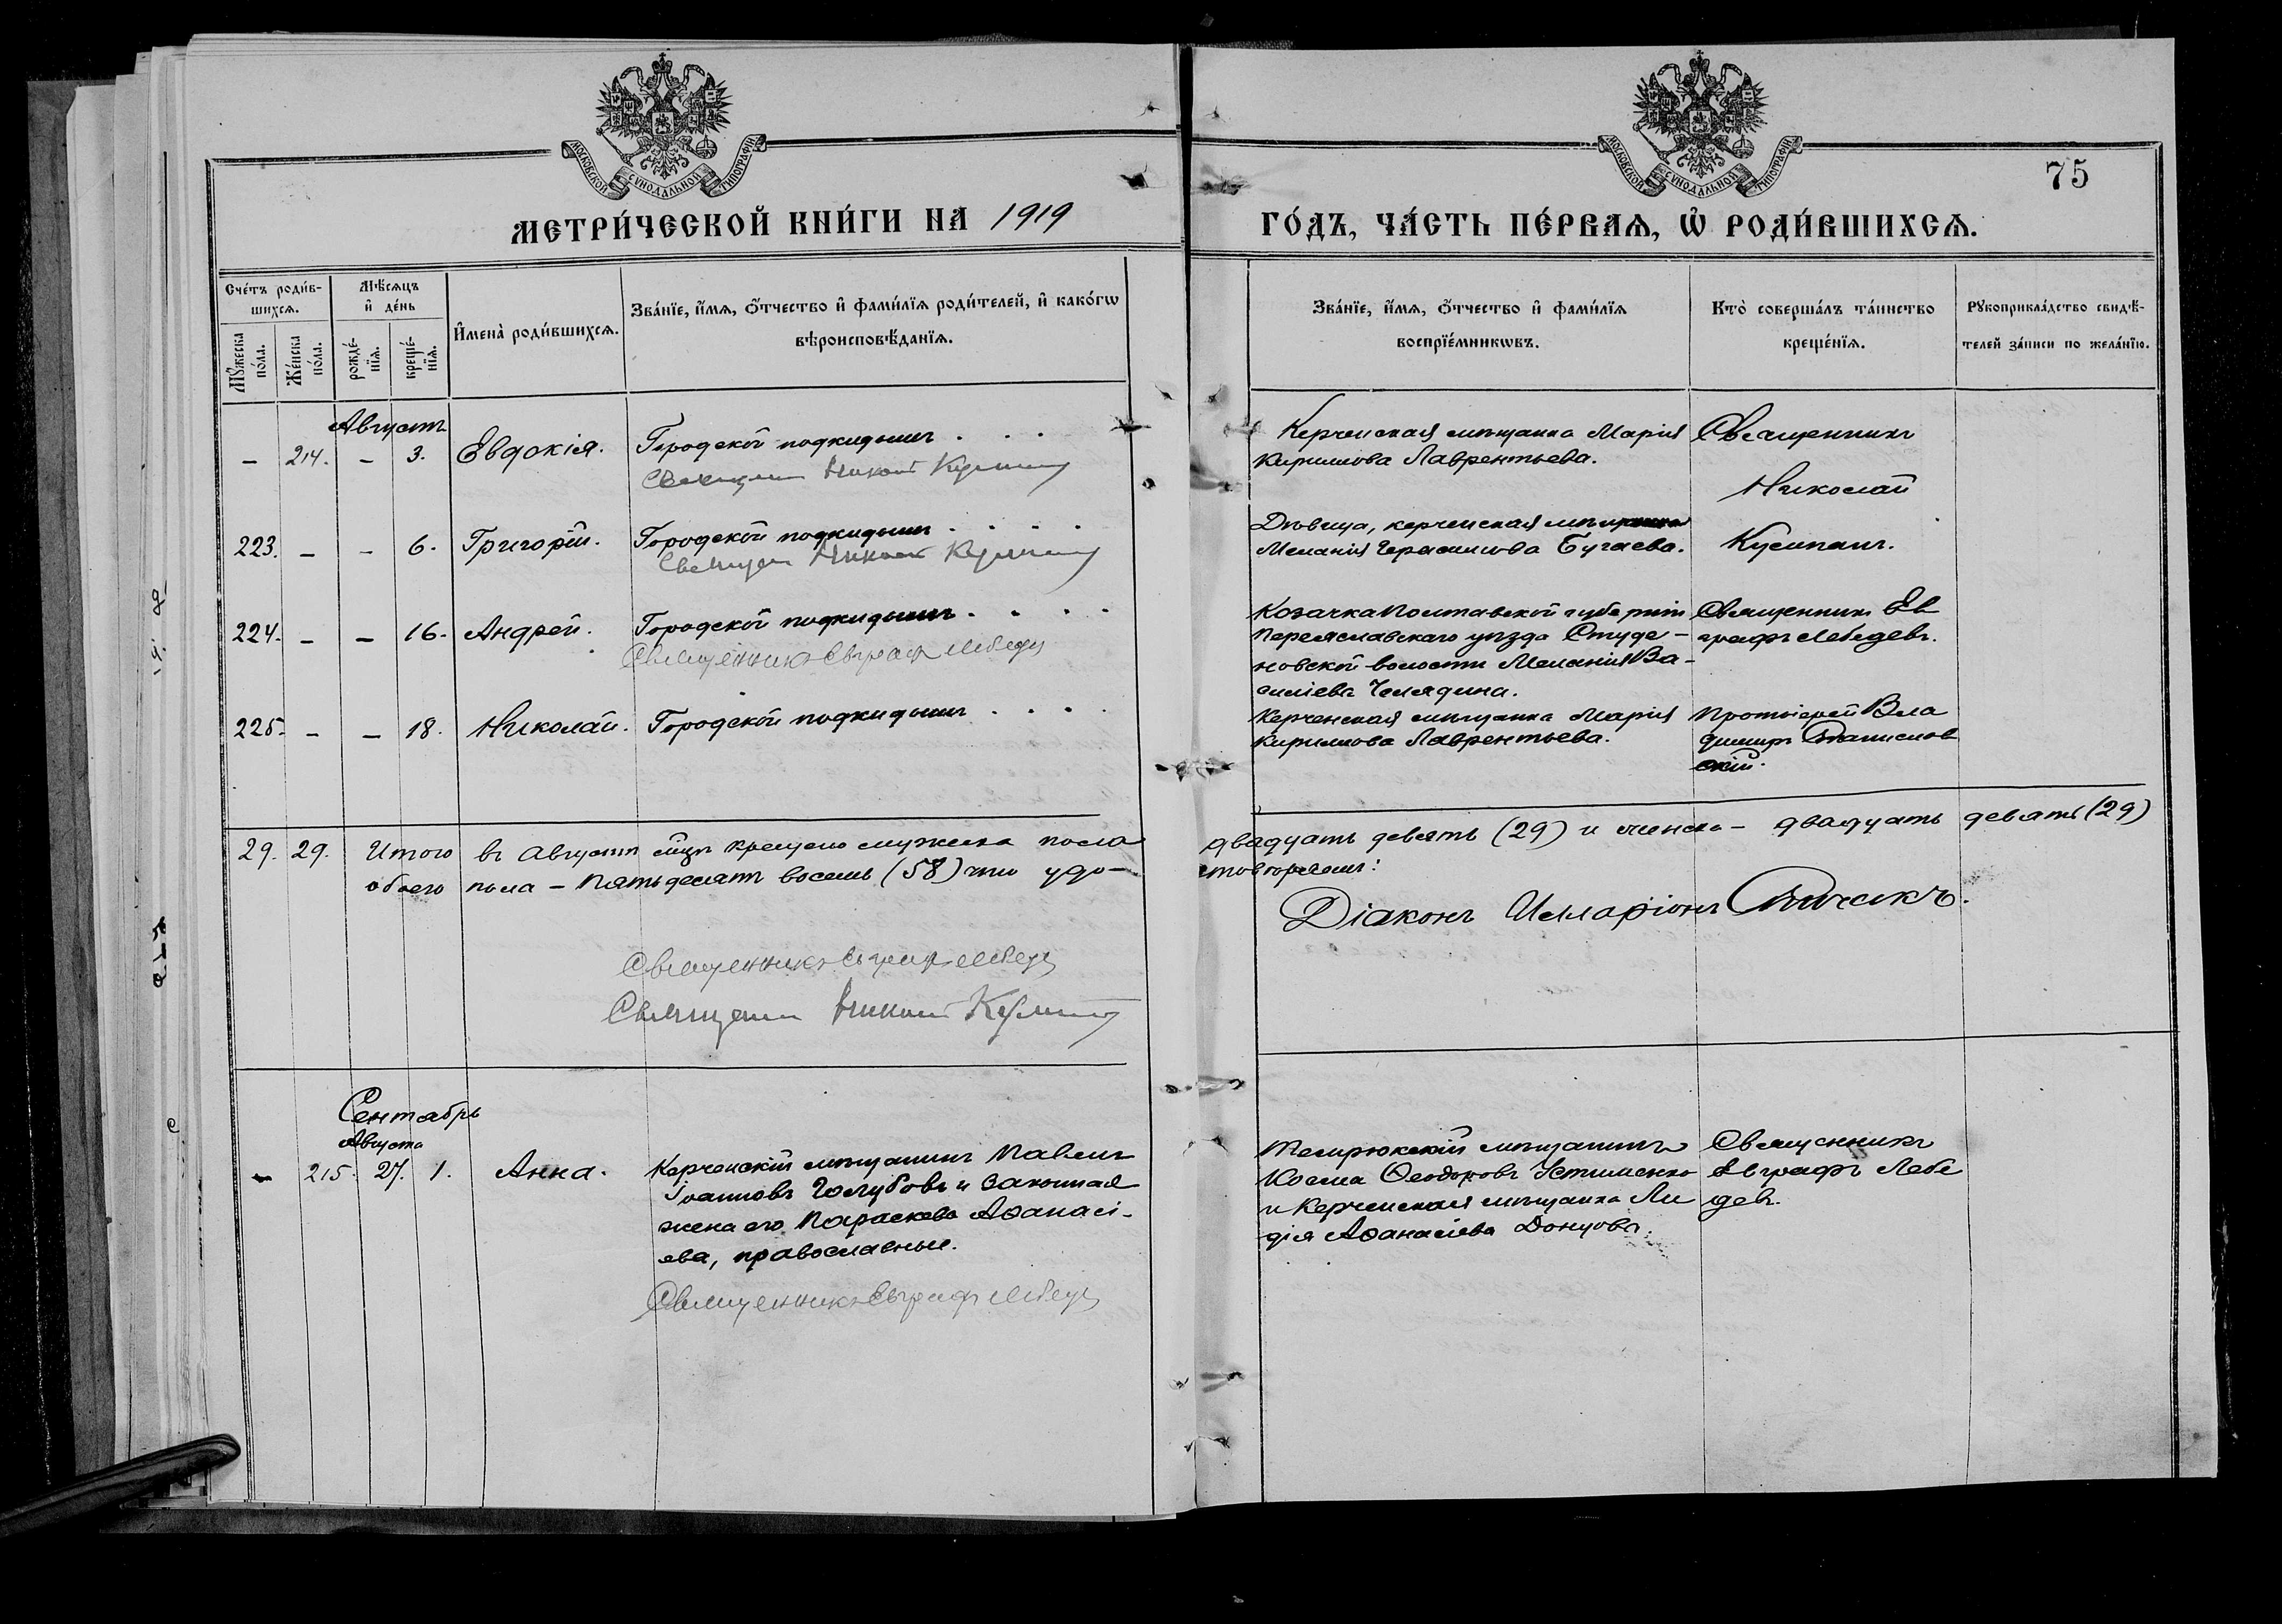 МОСКОВСКОЙ СѴНОДАЛЬНОЙ ТИПОГРАФІИ
МОСКОВСКОЙ СѴНОДАЛЬНОЙ ТИПОГРАФІИ
75
МЕТРИ́ЧЕСКОЙ КНИ́ГИ НА 1919
ГО́ДЪ, ЧА́СТЬ ПЕ́РВАѦ, Ѡ҆ РОДИ́ВШИХСѦ.
Сче́тъ роди́в-
шихсѧ.
Мꙋ́жеска по́ла.
Же́нска по́ла.
Мѣ́сѧцъ
и҆ де́нь
рожде́-нїѧ.
креще́-нїѧ.
И҆мена̀ роди́вшихсѧ.
Зва́нїе, и҆́мѧ, ѻ҆́тчество и҆ фами́лїѧ роди́телей, и҆ како́гѡ
вѣроисповѣ́данїѧ.
Зва́нїе, и҆́мѧ, ѻ҆́тчество и҆ фами́лїѧ
воспрїе́мникѡвъ.
Кто̀ соверша́лъ та́инство
креще́нїѧ.
Рꙋкоприкла́дство свидѣ́-
телей за́писи по жела́нїю.
Августъ
– 214. – 3. Евдокія. Городской подкидышъ . . .
Николай
Керченская мѣщанка Марія
Кирилова Лаврентьева.
Священникъ
Николай
223. – – 6. Григорій. Городской подкидышъ . . . .
Николай
Дѣвица, керченская мѣщанка
Меланія Герасимова Бугаева.
224. – – 16. Андрей. Городской подкидышъ . . . .
Священникъ Евграфъ Лебедевъ
Козачка Полтавской губерніи
Переяславскаго уѣзда Студе-
новской волости Меланія Ва-
силіева
Священникъ Ев
графъ Лебедевъ.
225. – – 18. Николай. Городской подкидышъ . . . .
Керченская мѣщанка Марія
Кирилова Лаврентьева.
Протоіерей Вла
димиръ Станислав
скій.
29. 29. Итого въ Августѣ мцѣ крещено мужска пола
двадцать девять (29) и женска – двадцать девять (29)
обоего пола – Пятьдесятъ восемь (58) что удо-
стовѣряемъ:
Діаконъ Илларіонъ
Священникъ Евграфъ Лебедевъ
Николай
Сентябрь
Августа
– 215. 27. 1. Анна. Керченскій мѣщанинъ Павелъ
Іоанновъ Голубовъ и законная
жена его Параскева Аѳанасі-
ева, православные.
Священникъ Евграфъ Лебедевъ
Темрюкскій мѣщанинъ
Косма Ѳеодоровъ Устименко
и Керченская мѣщанка Ли
дія Аѳанасіева Донцова.
Священникъ
Евграфъ Лебе
девъ.